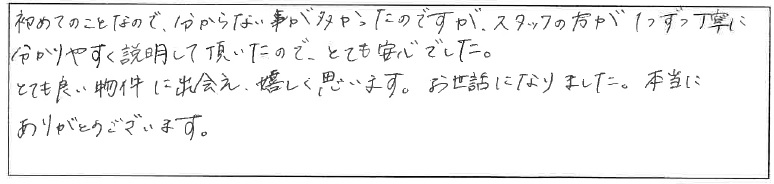 初めてのことなので、分からない事が多かったのですが、スタッフの方が1つずつ丁寧に
分かりやすく説明して頂いたので、とても安心でした。
とても良い物件に出会え、嬉しく思います。お世話になりました。本当に
ありがとうございます。